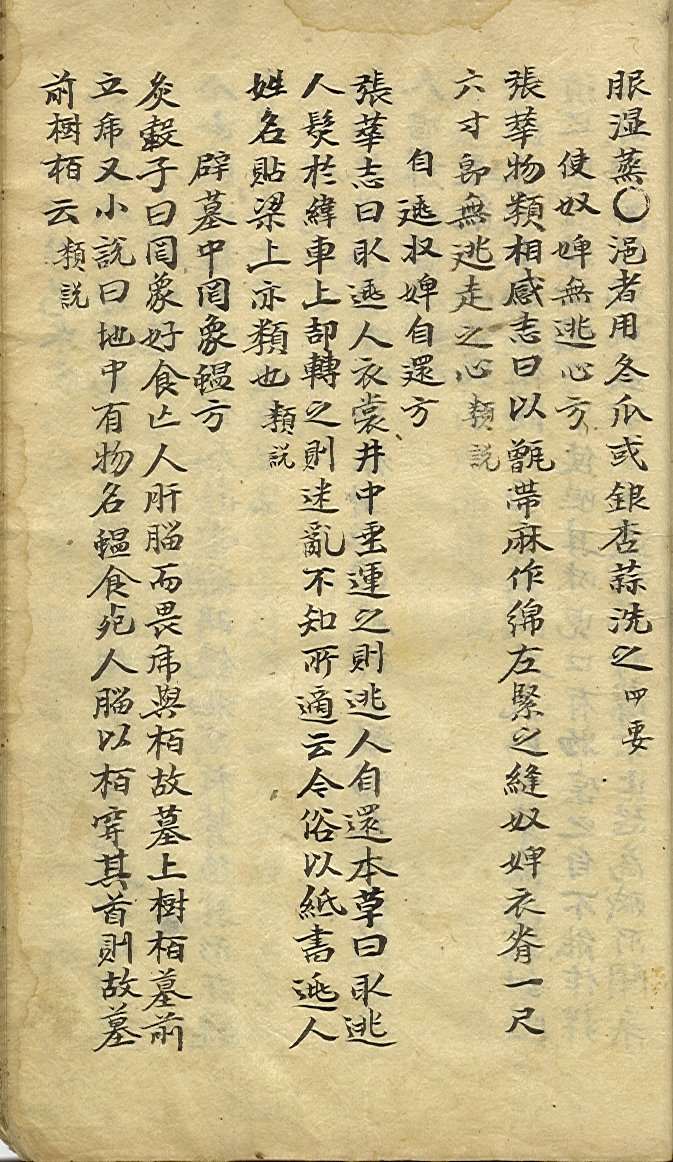 服湿蒸〇浥者用冬瓜或銀杏蒜洗之四要
使奴婢無逃心方
張華物類相感志曰以甑帶麻作綿左緊之縫奴婢衣脊一尺
六寸即無逃走之心類説
自逃奴婢自還方
張華志曰取逃人衣裳井中垂運之則逃人自還本草曰取逃
人髮於緯車上却轉之則迷亂不知所適云今俗以紙書逃人
姓名貼梁上亦類也類説
辟墓中罔象蝹方
炙轂子曰罔象好食亡人肝腦而畏虎與栢故墓上樹栢墓前
立虎又小説曰地中有物名蝹食死人腦以栢穿其首則故墓
前樹栢云類説